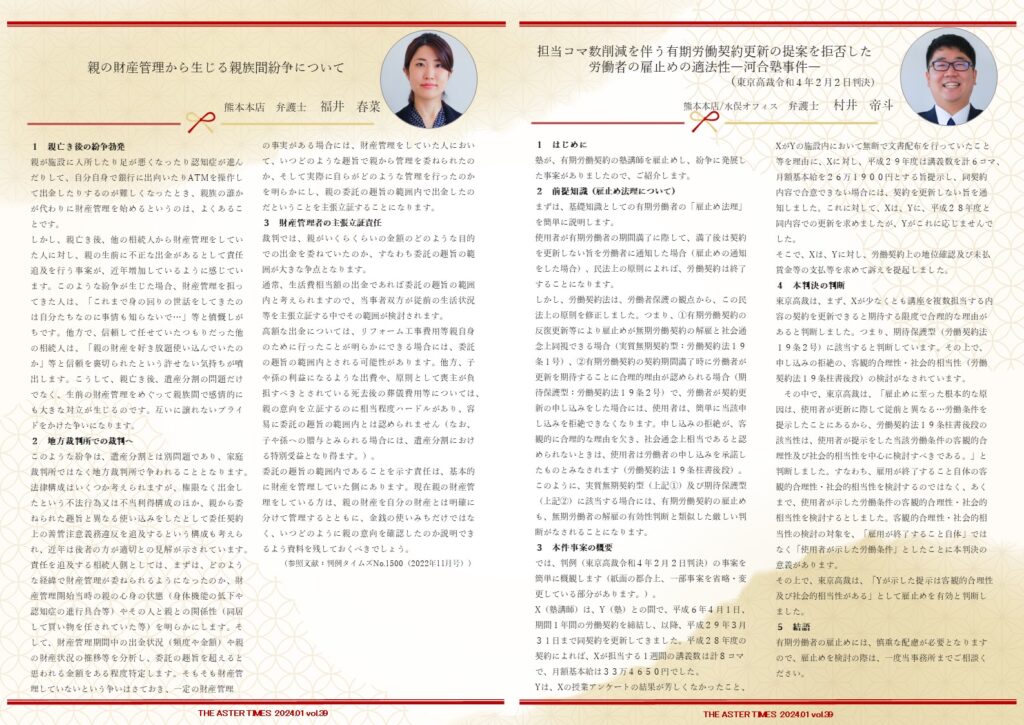 親の財産管理から生じる親族間紛争について
熊本本店　弁護士　福井　春菜
１　親亡き後の紛争勃発
親が施設に入所したり足が悪くなったり認知症が進ん
だりして、自分自身で銀行に出向いたりATMを操作し
て出金したりするのが難しくなったとき、親族の誰か
が代わりに財産管理を始めるというのは、よくあるこ
とです。
しかし、親亡き後、他の相続人から財産管理をしてい
た人に対し、親の生前に不正な出金があるとして責任
追及を行う事案が、近年増加しているように感じてい
ます。このような紛争が生じた場合、財産管理を担っ
てきた人は、「これまで身の回りの世話をしてきたの
は自分たちなのに事情も知らないで…」等と憤慨しが
ちです。他方で、信頼して任せていたつもりだった他
の相続人は、「親の財産を好き放題使い込んでいたの
か」等と信頼を裏切られたという許せない気持ちが噴
出します。こうして、親亡き後、遺産分割の問題だけ
でなく、生前の財産管理をめぐって親族間で感情的に
も大きな対立が生じるのです。互いに譲れないプライ
ドをかけた争いになります。
２　地方裁判所での裁判へ
このような紛争は、遺産分割とは別問題であり、家庭
裁判所ではなく地方裁判所で争われることとなります。
法律構成はいくつか考えられますが、権限なく出金し
たという不法行為又は不当利得構成のほか、親から委
ねられた趣旨と異なる使い込みをしたとして委任契約
上の善管注意義務違反を追及するという構成も考えら
れ、近年は後者の方が適切との見解が示されています。
責任を追及する相続人側としては、まずは、どのよう
な経緯で財産管理が委ねられるようになったのか、財
産管理開始当時の親の心身の状態（身体機能の低下や
認知症の進行具合等）やその人と親との関係性（同居
して買い物を任されていた等）を明らかにします。そ
して、財産管理期間中の出金状況（頻度や金額）や親
の財産状況の推移等を分析し、委託の趣旨を超えると
思われる金額をある程度特定します。そもそも財産管
理していないという争いはさておき、一定の財産管理
の事実がある場合には、財産管理をしていた人におい
て、いつどのような趣旨で親から管理を委ねられたの
か、そして実際に自らがどのような管理を行ったのか
を明らかにし、親の委託の趣旨の範囲内で出金したの
だということを主張立証することになります。
３　財産管理者の主張立証責任
裁判では、親がいくらくらいの金額のどのような目的
での出金を委ねていたのか、すなわち委託の趣旨の範
囲が大きな争点となります。
通常、生活費相当額の出金であれば委託の趣旨の範囲
内と考えられますので、当事者双方が従前の生活状況
等を主張立証する中でその範囲が検討されます。
高額な出金については、リフォーム工事費用等親自身
のために行ったことが明らかにできる場合には、委託
の趣旨の範囲内とされる可能性があります。他方、子
や孫の利益になるような出費や、原則として喪主が負
担すべきとされている死去後の葬儀費用等については、
親の意向を立証するのに相当程度ハードルがあり、容
易に委託の趣旨の範囲内とは認められません（なお、
子や孫への贈与とみられる場合には、遺産分割におけ
る特別受益となり得ます。）。
委託の趣旨の範囲内であることを示す責任は、基本的
に財産を管理していた側にあります。現在親の財産管
理をしている方は、親の財産を自分の財産とは明確に
分けて管理するとともに、金銭の使いみちだけではな
く、いつどのように親の意向を確認したのか説明でき
るよう資料を残しておくべきでしょう。
（参照文献：判例タイムズNo.1500（2022年11月号））
THE ASTER TIMES 2024.01 vol.39
担当コマ数削減を伴う有期労働契約更新の提案を拒否した
労働者の雇止めの適法性―河合塾事件―
（東京高裁令和４年２月２日判決）
熊本本店/水俣オフィス　弁護士　村井　帝斗
１　はじめに
塾が、有期労働契約の塾講師を雇止めし、紛争に発展し
た事案がありましたので、ご紹介します。
２　前提知識（雇止め法理について）
まずは、基礎知識としての有期労働者の「雇止め法理」
を簡単に説明します。
使用者が有期労働者の期間満了に際して、満了後は契約
を更新しない旨を労働者に通知した場合（雇止めの通知
をした場合）、民法上の原則によれば、労働契約は終了
することになります。
しかし、労働契約法は、労働者保護の観点から、この民
法上の原則を修正しました。つまり、①有期労働契約の
反復更新等により雇止めが無期労働契約の解雇と社会通
念上同視できる場合（実質無期契約型：労働契約法１９
条１号）、②有期労働契約の契約期間満了時に労働者が
更新を期待することに合理的理由が認められる場合（期
待保護型：労働契約法１９条２号）で、労働者が契約更
新の申し込みをした場合には、使用者は、簡単に当該申
し込みを拒絶できなくなります。申し込みの拒絶が、客
観的に合理的な理由を欠き、社会通念上相当であると認
められないときは、使用者は労働者の申し込みを承諾し
たものとみなされます（労働契約法１９条柱書後段）。
このように、実質無期契約型（上記①）及び期待保護型
（上記②）に該当する場合には、有期労働契約の雇止め
も、無期労働者の解雇の有効性判断と類似した厳しい判
断がなされることになります。
３　本件事案の概要
では、判例（東京高裁令和４年２月２日判決）の事案を
簡単に概観します（紙面の都合上、一部事案を省略・変
更している部分があります。）。
X（塾講師）は、Y（塾）との間で、平成６年４月１日、
期間１年間の労働契約を締結し、以降、平成２９年３月
３１日まで同契約を更新してきました。平成２８年度の
契約によれば、Xが担当する１週間の講義数は計８コマ
で、月額基本給は３３万４６５０円でした。
Yは、Xの授業アンケートの結果が芳しくなかったこと、
XがYの施設内において無断で文書配布を行っていたこと
等を理由に、Xに対し、平成２９年度は講義数を計６コマ、
月額基本給を２６万１９００円とする旨提示し、同契約
内容で合意できない場合には、契約を更新しない旨を通
知しました。これに対して、Xは、Yに、平成２８年度と
同内容での更新を求めましたが、Yがこれに応じませんで
した。
そこで、Xは、Yに対し、労働契約上の地位確認及び未払
賃金等の支払等を求めて訴えを提起しました。
４　本判決の判断
東京高裁は、まず、Xが少なくとも講座を複数担当する内
容の契約を更新できると期待する限度で合理的な理由が
あると判断しました。つまり、期待保護型（労働契約法
１９条２号）に該当すると判断しています。その上で、
申し込みの拒絶の、客観的合理性・社会的相当性（労働
契約法１９条柱書後段）の検討がなされています。
その中で、東京高裁は、「雇止めに至った根本的な原
因は、使用者が更新に際して従前と異なる…労働条件を
提示したことにあるから、労働契約法１９条柱書後段の
該当性は、使用者が提示をした当該労働条件の客観的合
理性及び社会的相当性を中心に検討すべきである。」と
判断しました。すなわち、雇用が終了すること自体の客
観的合理性・社会的相当性を検討するのではなく、あく
まで、使用者が示した労働条件の客観的合理性・社会的
相当性を検討するとしました。客観的合理性・社会的相
当性の検討の対象を、「雇用が終了すること自体」では
なく「使用者が示した労働条件」としたことに本判決の
意義があります。
その上で、東京高裁は、「Yが示した提示は客観的合理性
及び社会的相当性がある」として雇止めを有効と判断し
ました。
５　結語
有期労働者の雇止めには、慎重な配慮が必要となります
ので、雇止めを検討の際は、一度当事務所までご相談く
ださい。
THE ASTER TIMES 2024.01 vol.39